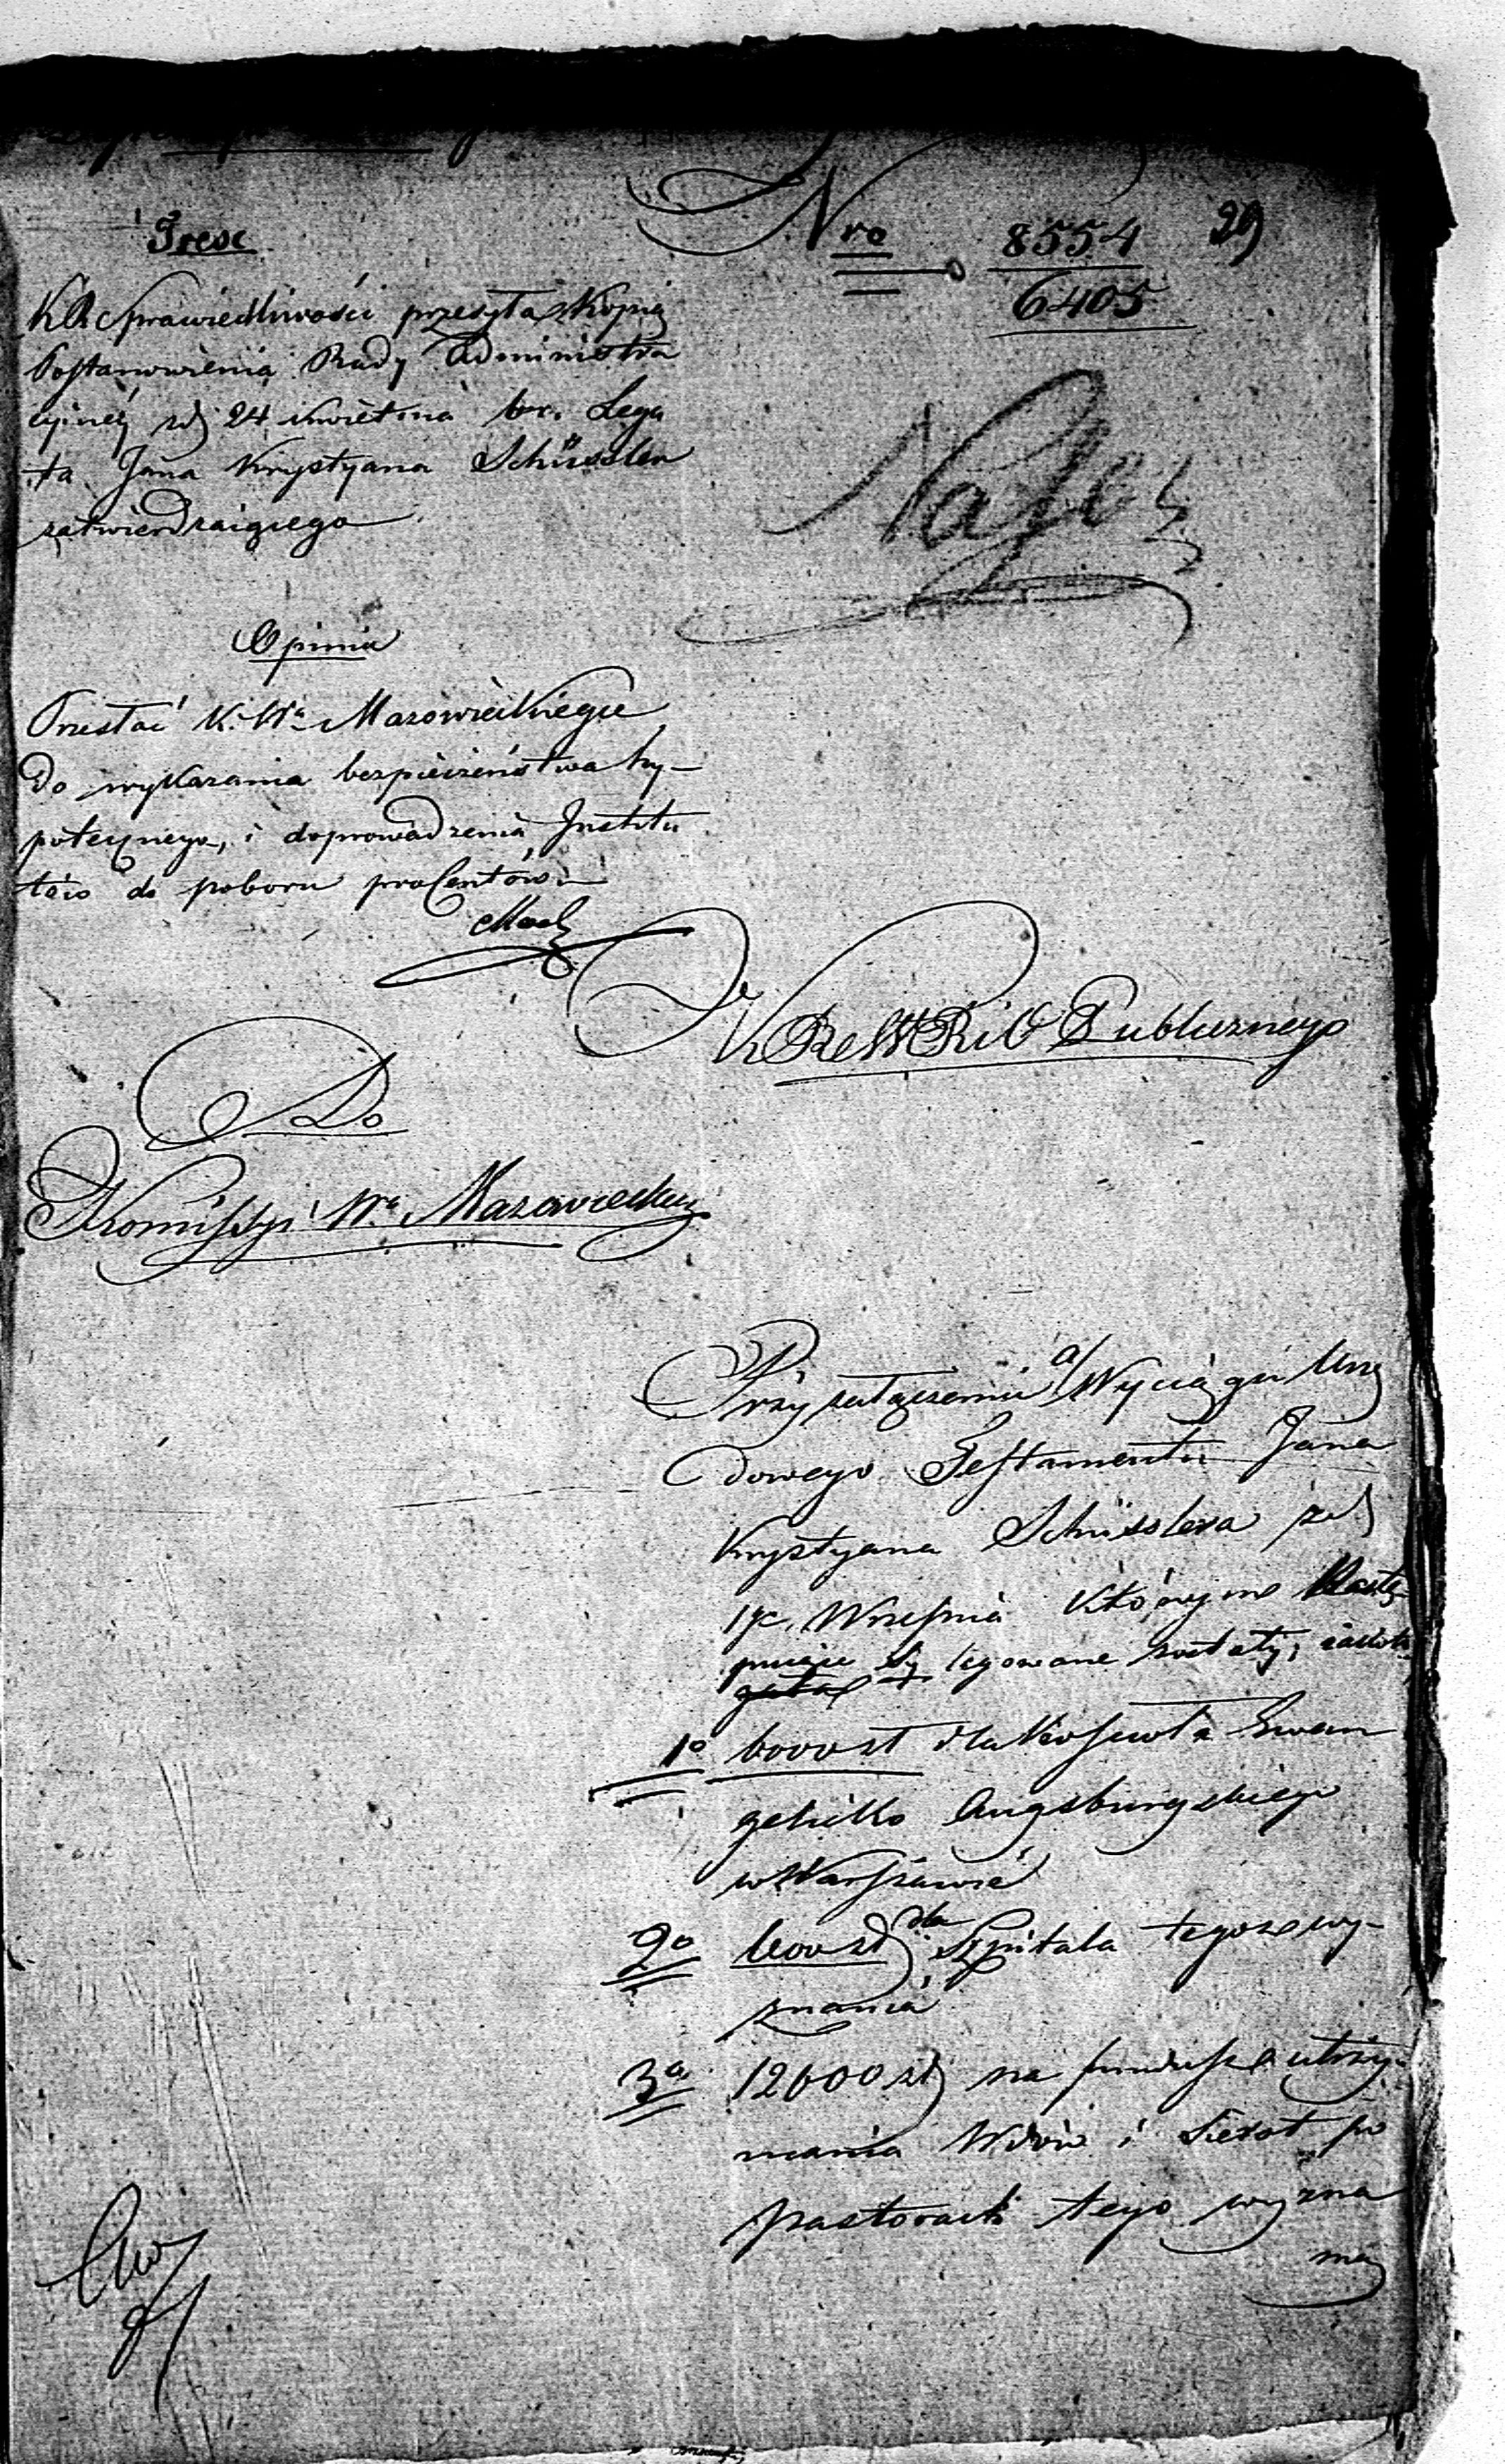 Treść
Nro 8554 29
6405
KR Sprawiedliwości przesyła Kopią
Postanowienia Rady Administra
cyjney zd 24 Kwietnia br. Lega
ta Jana Krystyana Schüssler
zatwierdzaiącego
Opinia
Przesłać K. Wa Mazowieckiego
do wykazania bezpieczeństwa hy-
potecznego, i doprowadzenia Institu
tów do poboru procentów
KRzSWRiO Publicznego
Do
Kommissyi Wa Mazowieckiey
Przy załączeniu a/ Wyciągu Urzę
dowego Testamentu Jana
Krystyana Schüsslera zd
Września którym Nastę-
puiące Są legowane zostały,
1o 6000 zł dla Kościoła Ewan
gelicko Augsburgskiego
w Warszawie
2o 6000 zł dla Szpitala tegoż wy-
znania
3o 12600 zł na fundusz utrzy-
mania Wdów i Sierot po
pastorach tego wyzna
nia